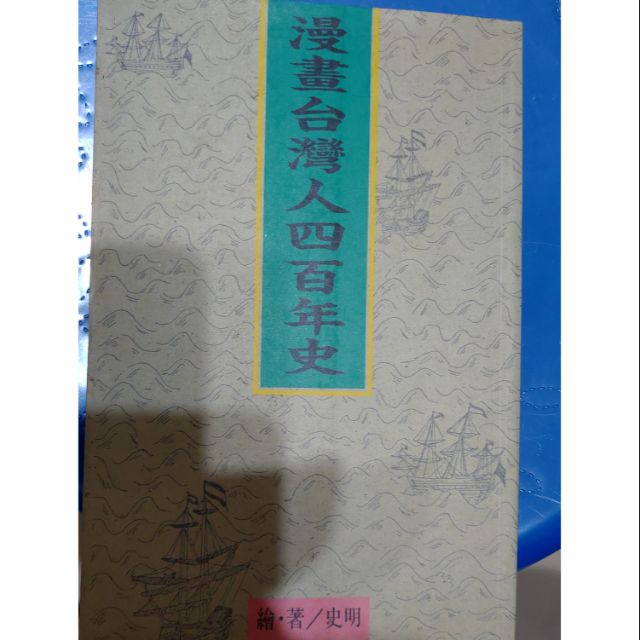 漫畫台灣人四百年史
繪·著/史明